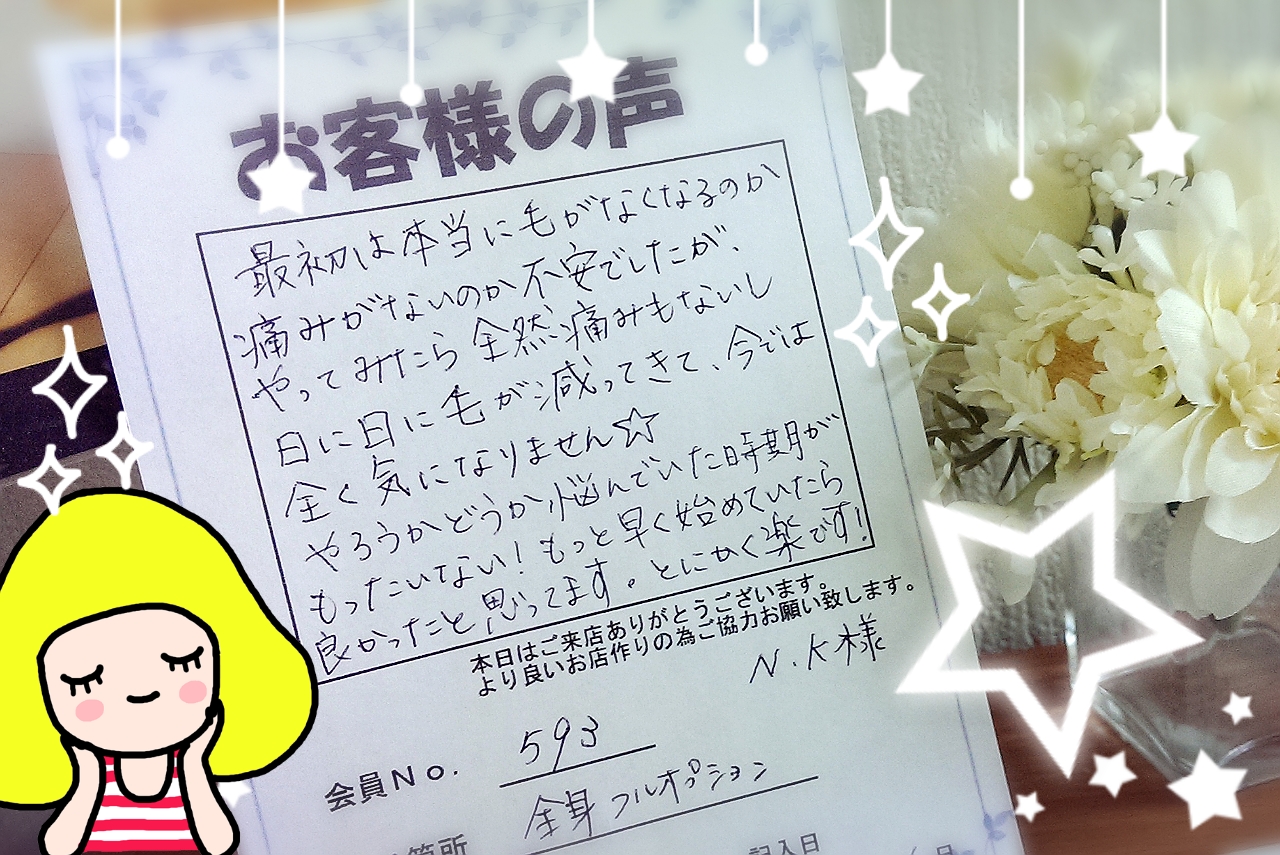 お客様の声
最初は本当に毛がなくなるのか
痛みがないのか不安でしたが、
やってみたら全然痛みもないし
日に日に毛が減ってきて、今では
全く気になりません☆
やろうかどうか悩んでいた時期が
もったいない!もっと早く始めていたら
良かったなと思ってます。とにかく楽です!
本日はご来店ありがとうございます。
より良いお店作りの為ご協力お願い致します。
N.K様
会員No. 593
全身フルオプション
箇所
記入日